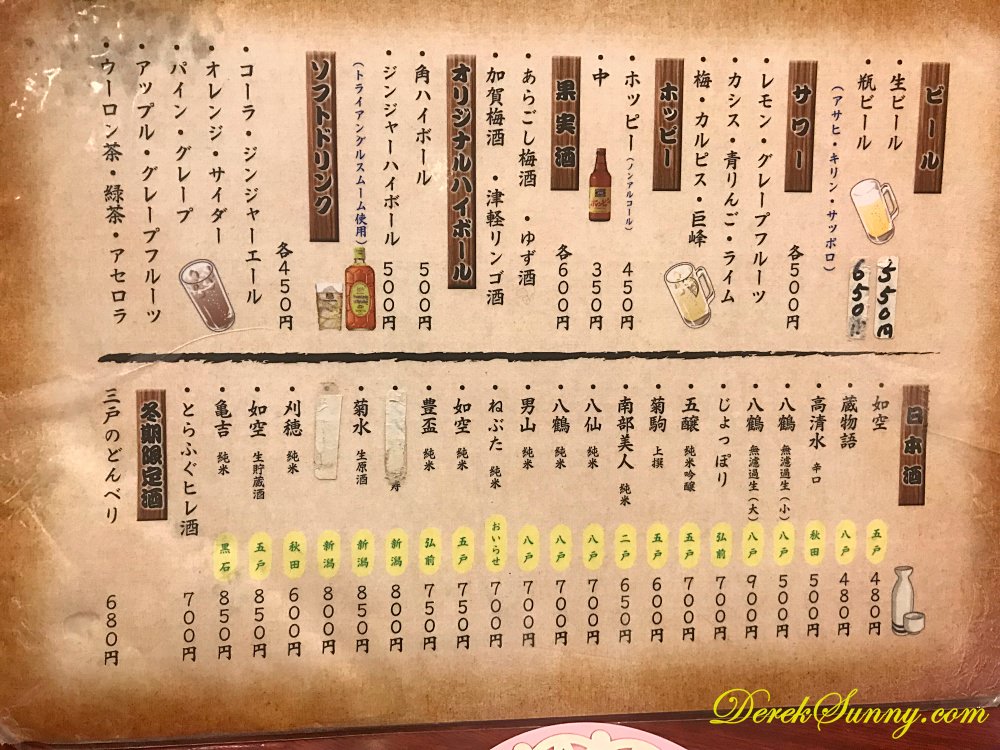 ビール
・生ビール 550円
・瓶ビール 650円
（アサヒ・キリン・サッポロ）
サワー
各500円
・レモン・グレープフルーツ
・カシス・青りんご・ライム
・梅・カルピス・巨峰
ホッピー
・ホッピー（ノンアルコール） 450円
・中 350円
果実酒
各600円
・あらごし梅酒 ・ゆず酒
・加賀梅酒 ・津軽リンゴ酒
オリジナルハイボール
・角ハイボール 500円
・ジンジャーハイボール 500円
（トライアングルスムーム使用）
ソフトドリンク
各450円
・コーラ・ジンジャーエール
・オレンジ・サイダー
・パイン・グレープ
・アップル・グレープフルーツ
・ウーロン茶・緑茶・アセロラ
日本酒
・如空 五戸 480円
・蔵物語 八戸 480円
・高清水 辛口 秋田 500円
・八鶴 無濾過生（小） 八戸 500円
・八鶴 無濾過生（大） 八戸 900円
・じょっぱり 弘前 700円
・五醸 純米吟醸 五戸 700円
・菊駒 上撰 五戸 600円
・南部美人 純米 二戸 650円
・八仙 純米 八戸 700円
・八鶴 純米 八戸 700円
・男山 純米 八戸 700円
・ねぶた 純米 おいらせ 700円
・如空 純米 五戸 750円
・豊盃 純米 弘前 750円
・ 新潟 800円
・菊水 生原酒 新潟 850円
・ 新潟 800円
・刈穂 純米 秋田 600円
・如空 生貯蔵酒 五戸 850円
・亀吉 純米 黒石 850円
・とらふぐヒレ酒 700円
冬期限定酒
三戸のどんべり 680円
DerekSunny.com